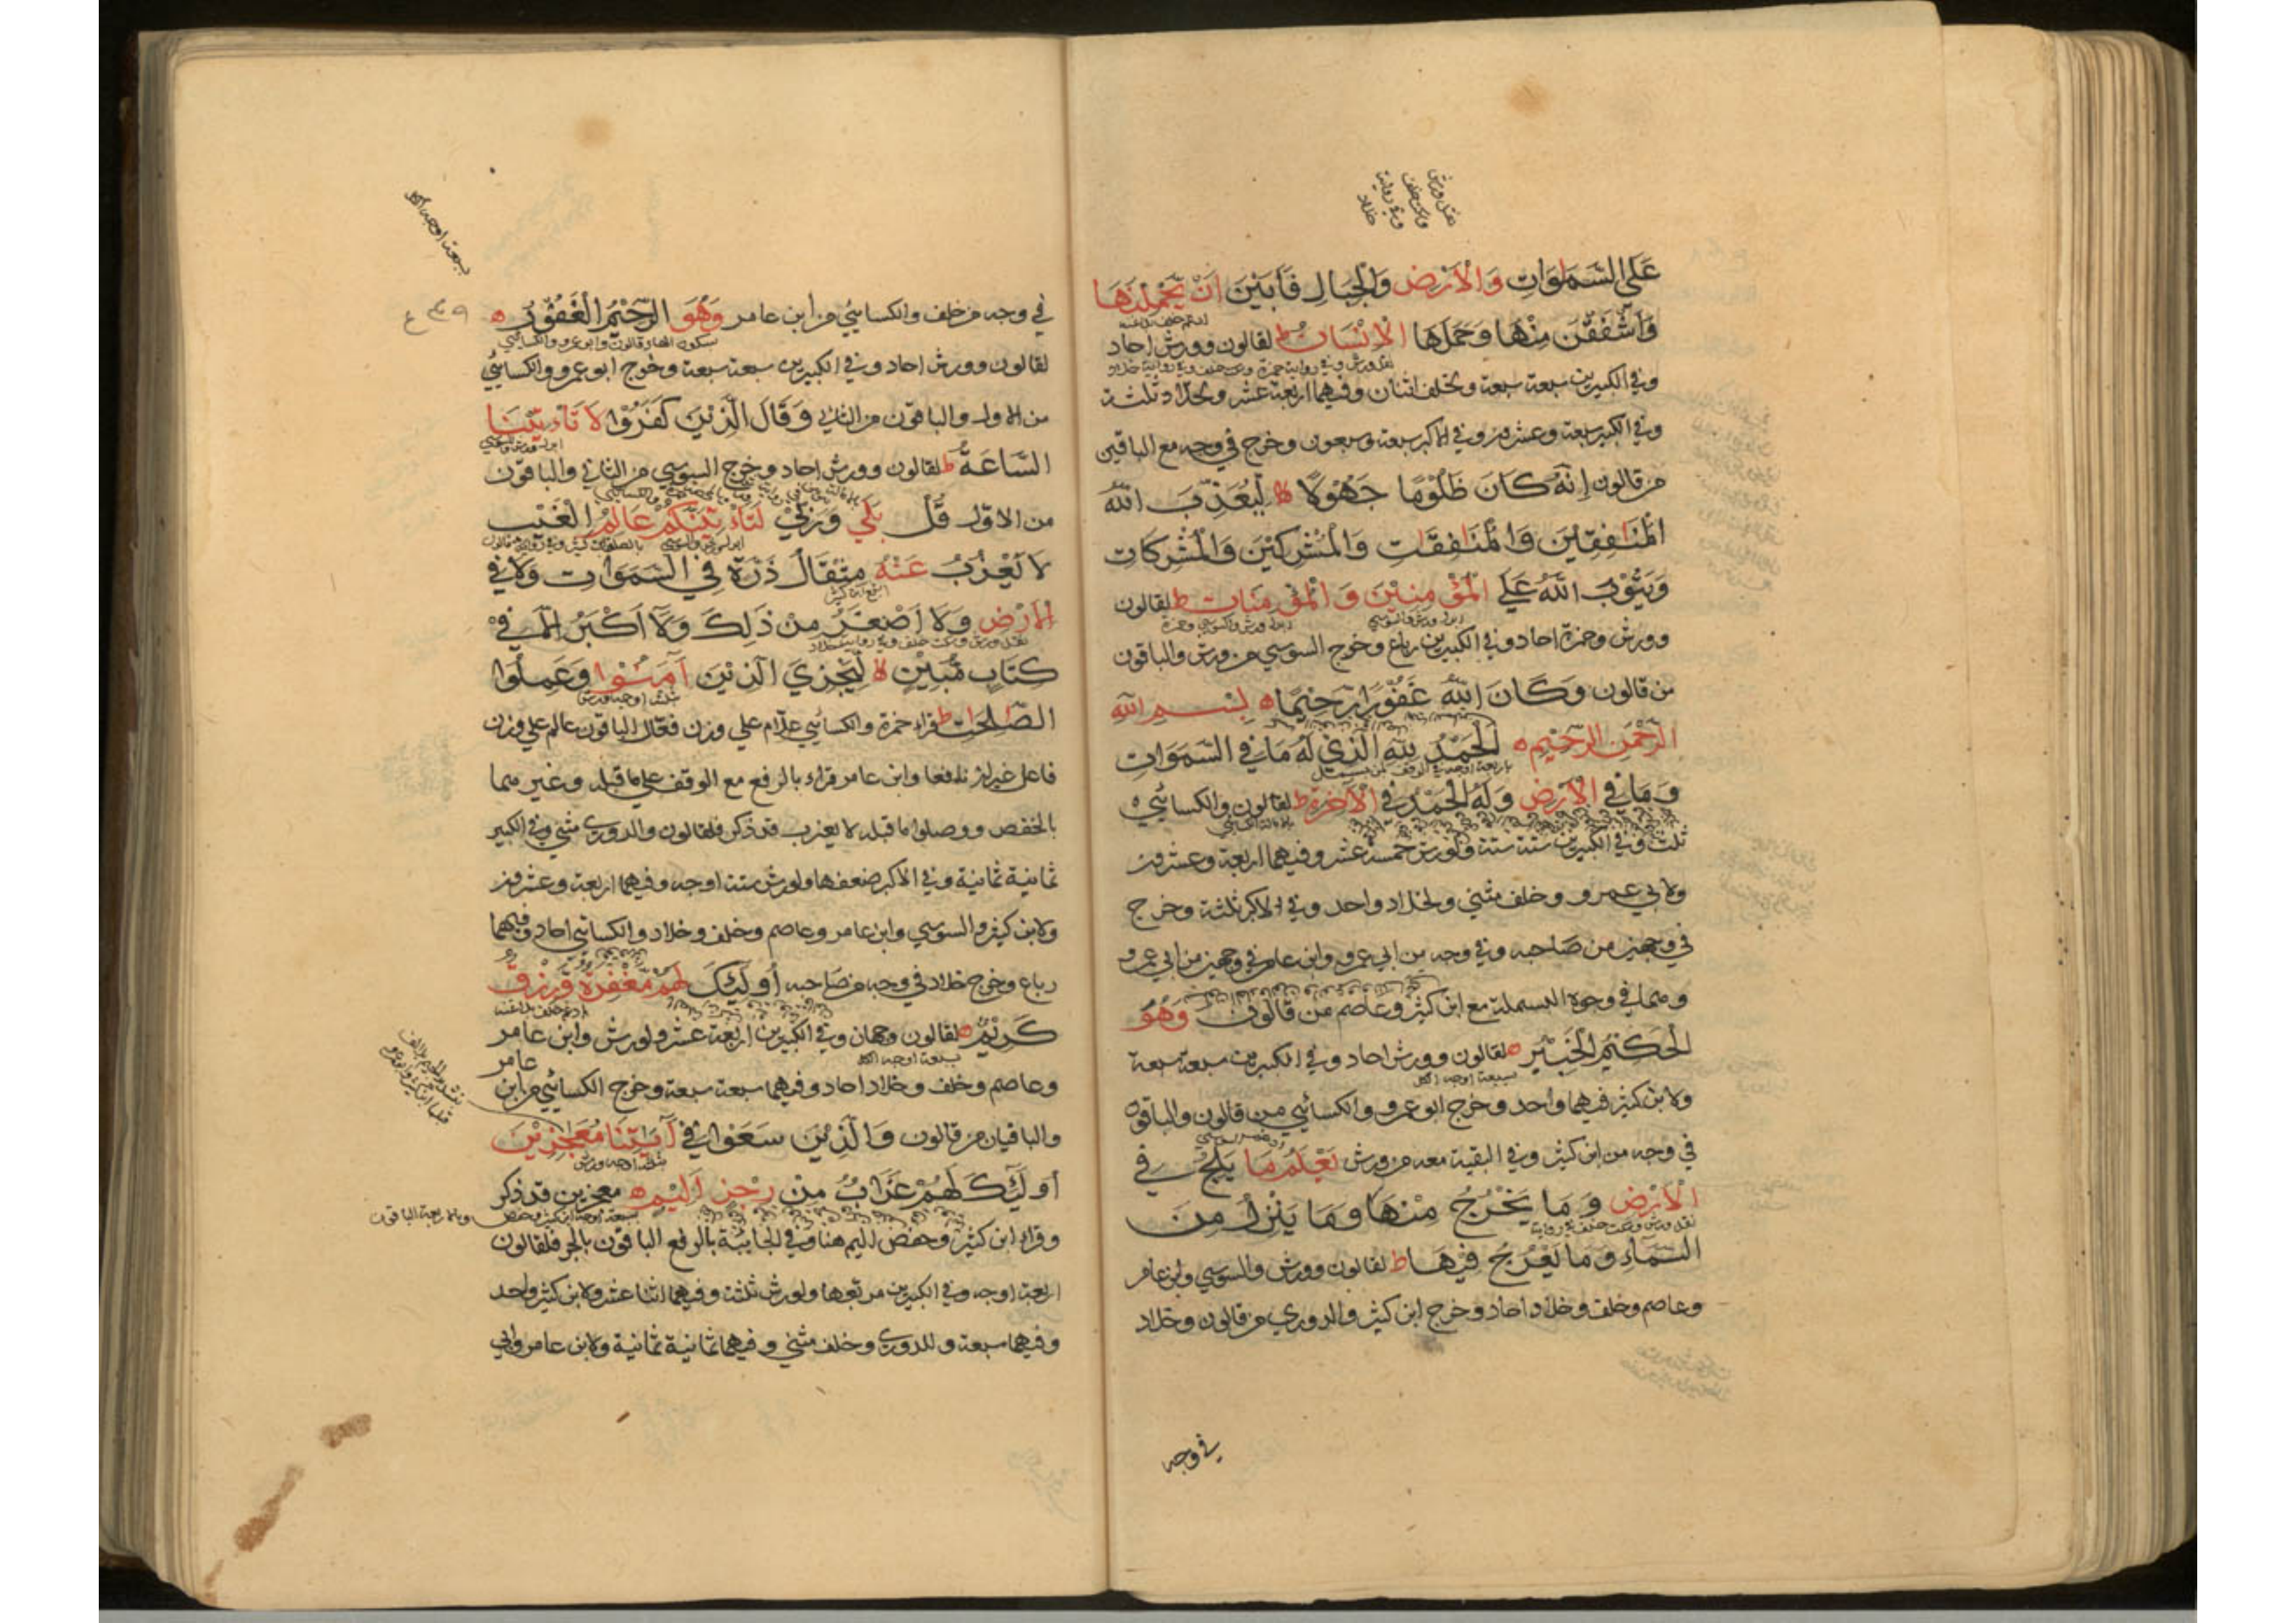 نقل ورش
وسكت خلف
وفي رواية
خلاد
عَلَى السَّمٰوَاتِ وَالْاَرْضِ وَالْجِبَالِ فَاَبَيْنَ اَنْ يَّحْمِلْنَهَا
وَاَشْفَقْنَ مِنْهَا وَحَمَلَهَا الْاِنْسَانُ ط لقالون وورش احاد
وفي الكبيرين سبعة سبعة ولخلف اثنان وفيهما اربعة عشر ولخلاد ثلثة
وفي الكبير سبعة وعشرون وفي الاكبر سبعة وسبعون وخرج في وجه مع الباقين
من قالون اِنَّهُ كَانَ ظَلُوْمًا جَهُوْلًا لا لِيُعَذِّبَ اللّٰهُ
الْمُنَافِقِيْنَ وَالْمُنَافِقَاتِ وَالْمُشْرِكِيْنَ وَالْمُشْرِكَاتِ
وَيَتُوْبَ اللّٰهُ عَلَى الْمُؤْمِنِيْنَ وَالْمُؤْمِنَاتِ ط لقالون
وورش وحمزة احاد وفي الكبيرين رباع وخرج السوسي من ورش والباقون
من قالون وَكَانَ اللّٰهُ غَفُوْرًا رَّحِيْمًا ه بِسْمِ اللّٰهِ
الرَّحْمٰنِ الرَّحِيْمِ ه اَلْحَمْدُ لِلّٰهِ الَّذِيْ لَهُ مَا فِي السَّمٰوَاتِ
وَمَا فِي الْاَرْضِ وَلَهُ الْحَمْدُ فِي الْاٰخِرَةِ ط لقالون والكسائي
ثلث وفي الكبيرين ستة ستة ولورش خمسة عشر وفيهما اربعة وعشرون
ولابي عمرو وخلف مثنى ولخلاد واحد وفي الاكبر ثلثة وخرج
في وجهين من صاحبه وفي وجه من ابي عمرو وابن عامر في وجهين من ابي عمرو
ومنهما في وجوه البسملة مع ابن كثير وعاصم من قالون وَهُوَ
الْحَكِيْمُ الْخَبِيْرُ ه لقالون وورش احاد وفي الكبيرين سبعة سبعة
سبعة اوجه الكل
ولابن كثير فيهما واحد وخرج ابو عمرو والكسائي من قالون والباقون
في وجه من ابن كثير وفي البقية معه من ورش يَعْلَمُ مَا يَلِجُ فِي
الْاَرْضِ وَمَا يَخْرُجُ مِنْهَا وَمَا يَنْزِلُ مِنَ
السَّمَآءِ وَمَا يَعْرُجُ فِيْهَا ط لقالون وورش والسوسي وابن عامر
وعاصم وخلف وخلاد احاد وخرج ابن كثير والدوري من قالون وخلاد
في وجه
سبعة اوجه الكل
٤٣٩ ع
في وجه من خلف والكسائي من ابن عامر وَهُوَ الرَّحِيْمُ الْغَفُوْرُ ه
سكون الهاء قالون وابو عمرو والكسائي
لقالون وورش احاد وفي الكبيرين سبعة سبعة وخرج ابو عمرو والكسائي
من الاول والباقون من الثاني وَقَالَ الَّذِيْنَ كَفَرُوْا لَا تَأْتِيْنَا
السَّاعَةُ ط لقالون وورش احاد وخرج السوسي من الثاني والباقون
من الاول قُلْ بَلٰى وَرَبِّيْ لَتَأْتِيَنَّكُمْ عَالِمُ الْغَيْبِ
لَا يَعْزُبُ عَنْهُ مِثْقَالُ ذَرَّةٍ فِي السَّمٰوَاتِ وَلَا فِي
الْاَرْضِ وَلَا اَصْغَرُ مِنْ ذٰلِكَ وَلَا اَكْبَرُ اِلَّا فِيْ
نقل ورش وسكت خلف وفي رواية خلاد
كِتَابٍ مُّبِيْنٍ لا لِيَجْزِيَ الَّذِيْنَ اٰمَنُوْا وَعَمِلُوا
ثلثة اوجه ورش
الصّٰلِحٰتِ ط قراء حمزة والكسائي علّام على وزن فعّال الباقون عالم على وزن
فاعل غير ان نافعا وابن عامر قراء بالرفع مع الوقف على ما قبله وغيرهما
بالخفض ووصلوا ما قبله لا يعزب قد ذكر فلقالون والدوري مثنى وفي الكبير
ثمانية ثمانية وفي الاكبر ضعفها ولورش ستة اوجه وفيهما اربعة وعشرون
ولابن كثير والسوسي وابن عامر وعاصم وخلف وخلاد والكسائي احاد وفيهما
رباع وخرج خلاد في وجه من صاحبه اُولٰٓئِكَ لَهُمْ مَّغْفِرَةٌ وَّرِزْقٌ
كَرِيْمٌ ه لقالون وجهان وفي الكبيرين اربعة عشر ولورش وابن عامر
سبعة اوجه الكل
وعاصم وخلف وخلاد احاد وفيهما سبعة سبعة وخرج الكسائي من ابن عامر
والباقيان من قالون وَالَّذِيْنَ سَعَوْا فِيْ اٰيٰتِنَا مُعٰجِزِيْنَ
ثلثة اوجه ورش
اُولٰٓئِكَ لَهُمْ عَذَابٌ مِّنْ رِّجْزٍ اَلِيْمٍ ه معجزين قد ذكر
وقراء ابن كثير وحفص اليم هنا وفي الجاثية بالرفع الباقون بالجر فلقالون
اربعة اوجه وفي الكبيرين مربعها ولورش ثلثة وفيهما اثنا عشر ولابن كثير واحد
وفيهما سبعة وللدوري وخلف مثنى وفيهما ثمانية ثمانية ولابن عامر وابي